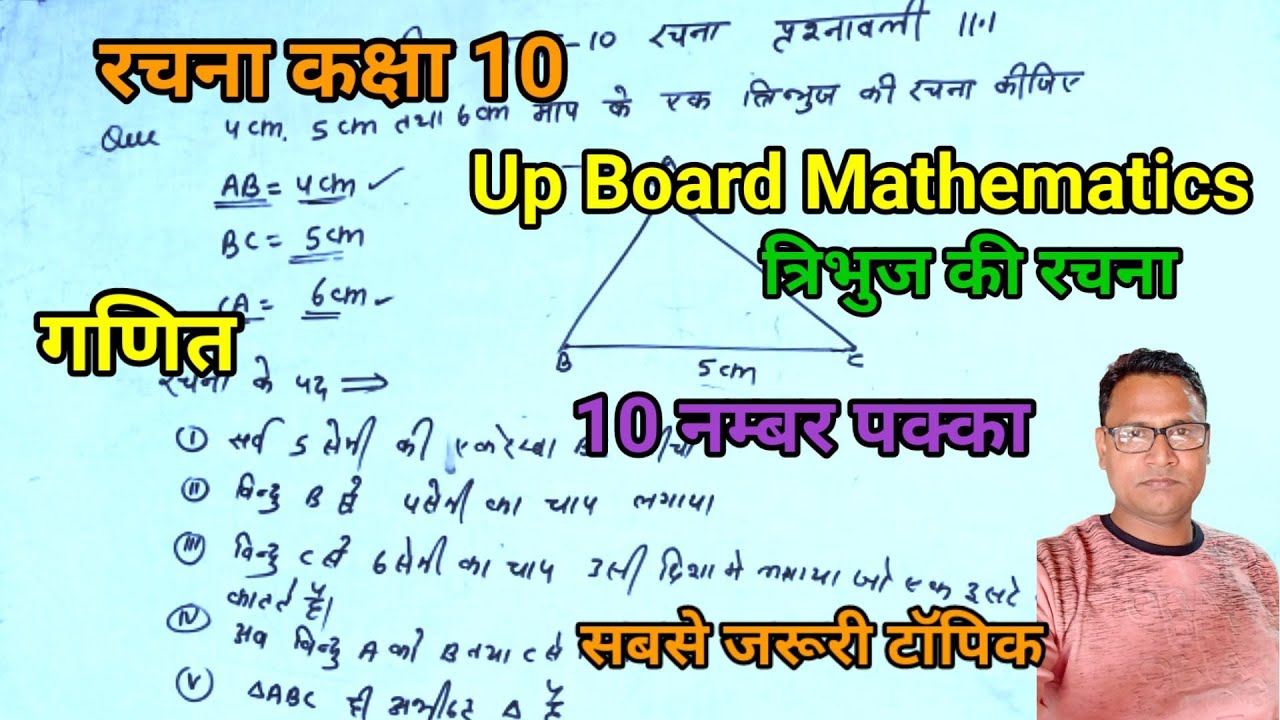 रचना कक्षा 10
-10 रचना प्रश्नावली 11.1
Que 4cm, 5cm तथा 6cm माप के एक त्रिभुज की रचना कीजिए
Up Board Mathematics
AB = 4cm ✓
त्रिभुज की रचना
BC = 5cm
CA = 6cm ✓
गणित
B C
5cm
रचना के पद ⇒
10 नम्बर पक्का
(i) सर्व 5 सेमी की एक रेखा
(ii) बिन्दु B से 4 सेमी का चाप लगाया
(iii) बिन्दु C से 6 सेमी का चाप उसी दिशा मे लगाया जो एक दुसरे
काटते है।
(iv) अब बिन्दु A को B तथा C से
सबसे जरूरी टॉपिक
(v) ΔABC ही अभीष्ट Δ है